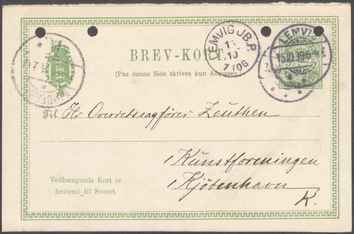 BREV-KORT
(Paa denne Side skrives kun Adressen)
LEMVIG JB.P.
LEMVIG
Til Hr. Overretssagfører Zeuthen
Kunstforeningen
Kjöbenhavn
K.
Vedhængende Kort er
bestemt til Svaret.